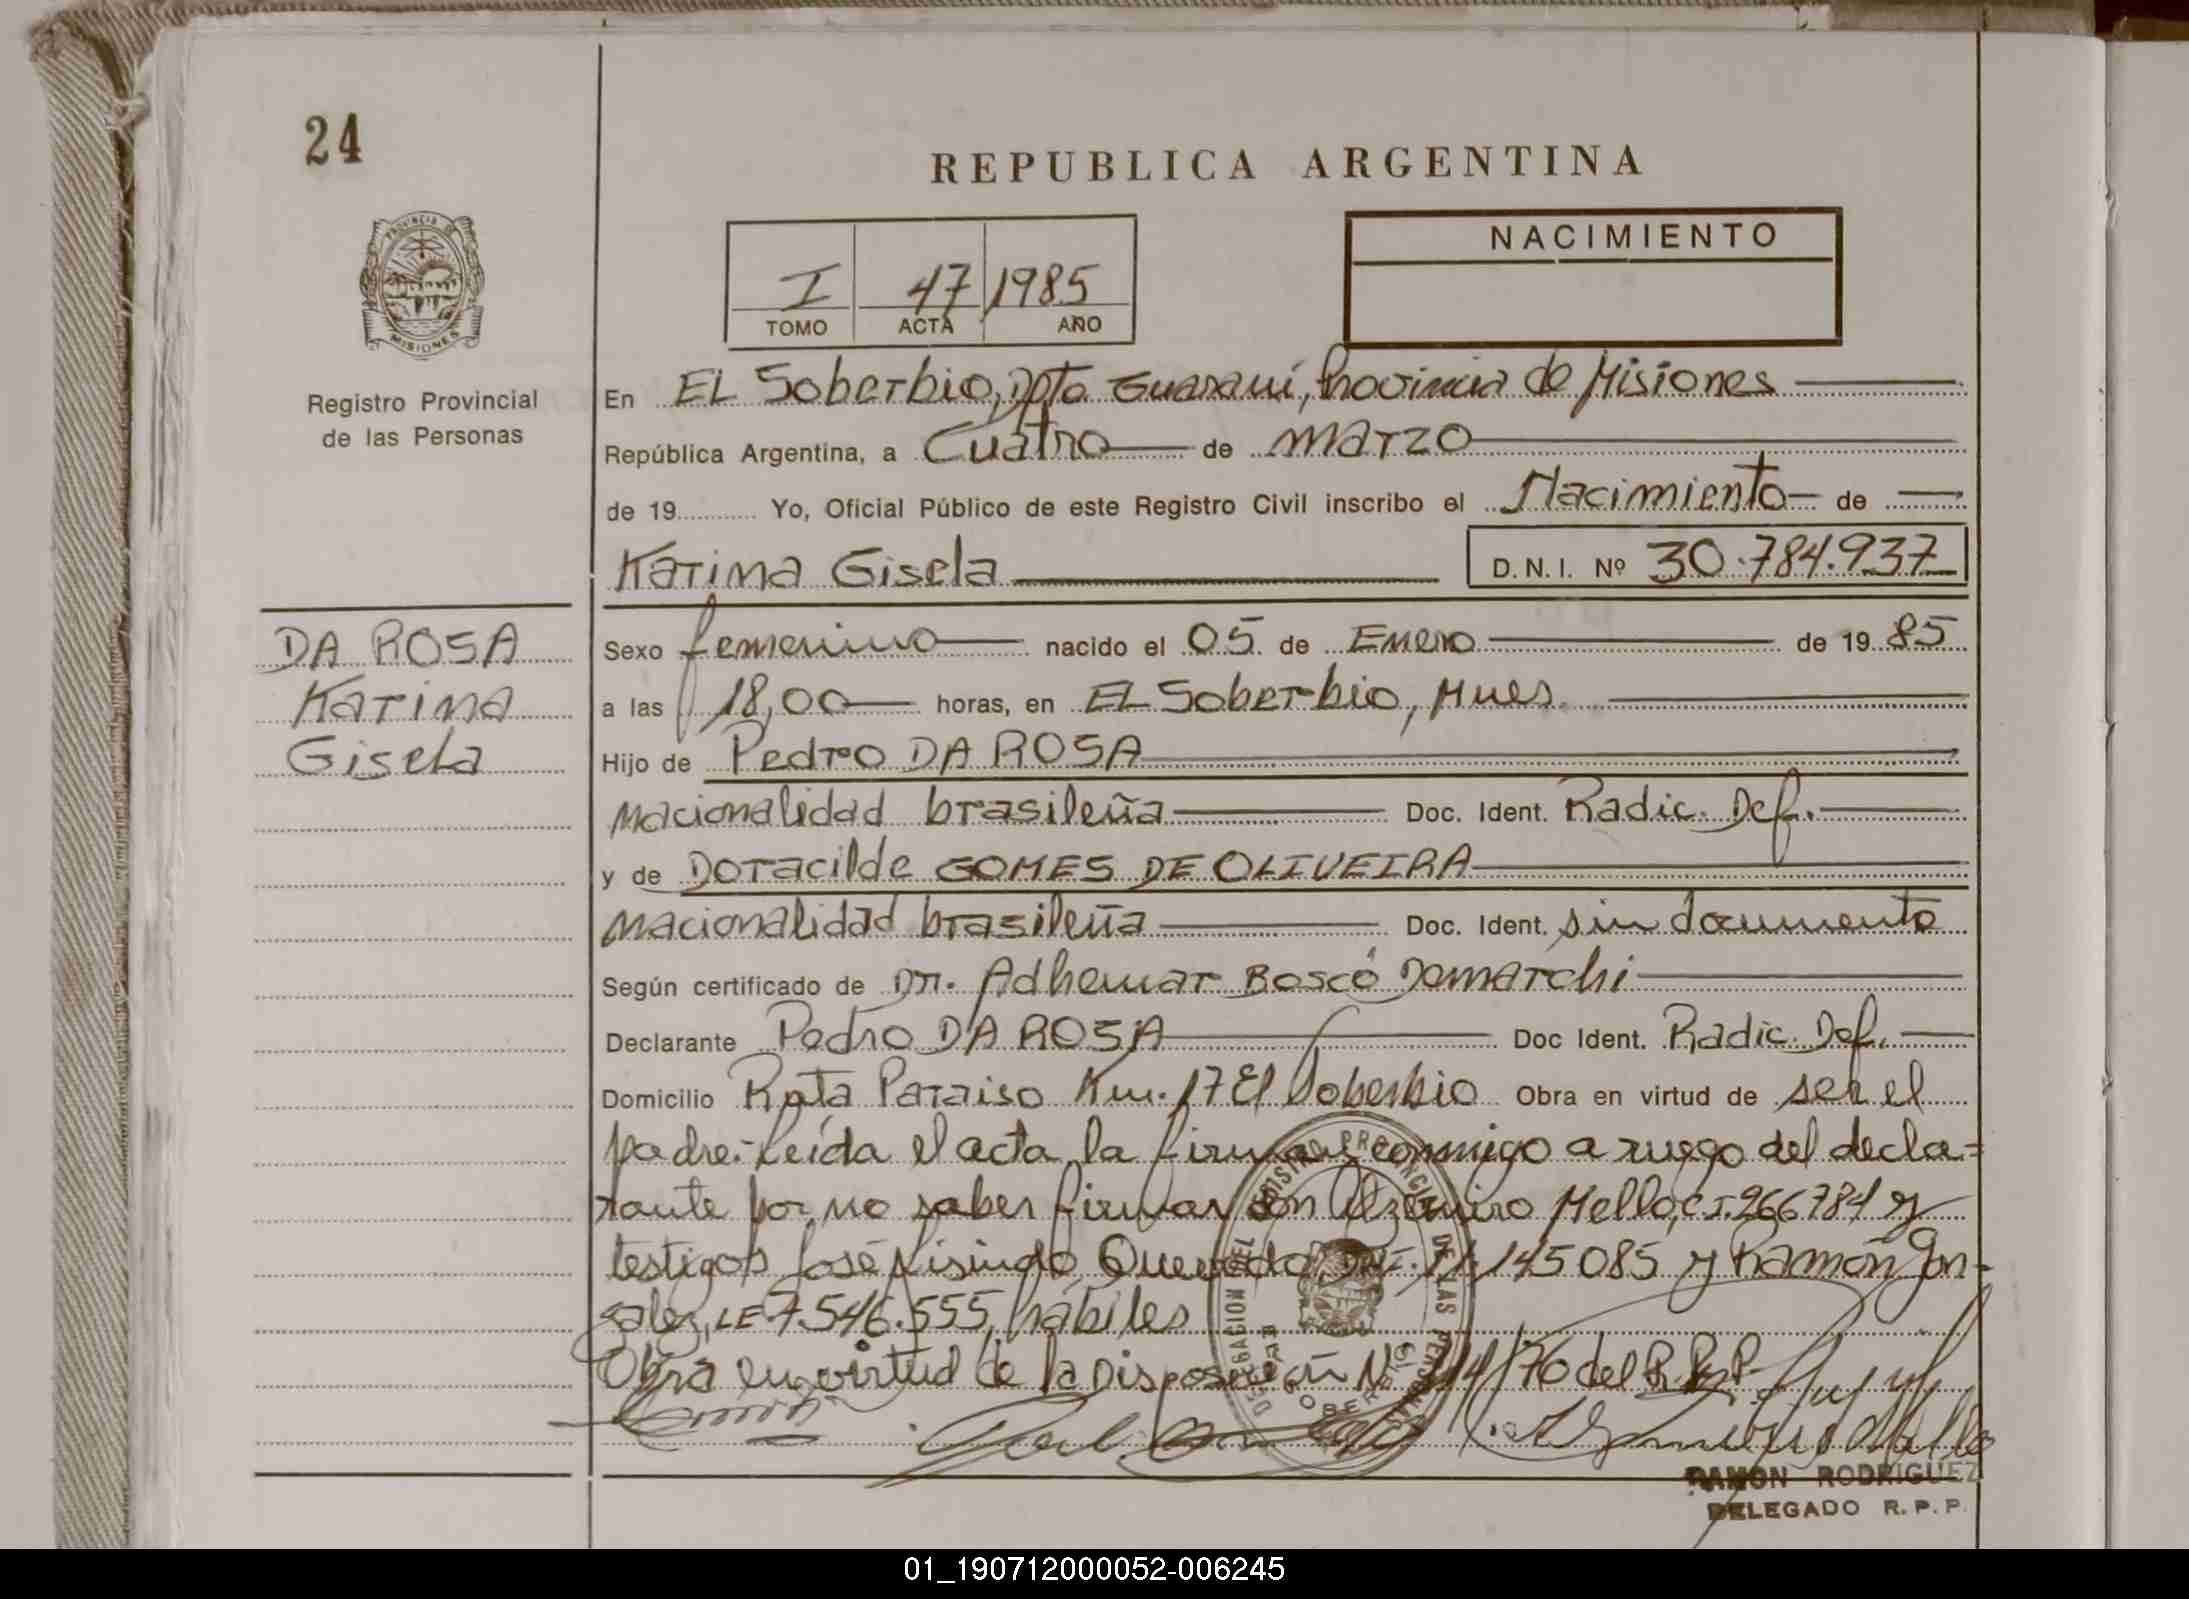 24
REPUBLICA ARGENTINA
PROVINCIA DE
MISIONES
Registro Provincial
de las Personas
I 47 1985
TOMO ACTA AÑO
NACIMIENTO
En EL Soberbio, Dpto Guaraní, Provincia de Misiones
República Argentina, a Cuatro de marzo
de 19 Yo, Oficial Público de este Registro Civil inscribo el Nacimiento de
Karina Gisela D.N.I. Nº 30.784.937
DA ROSA
Karina
Gisela
Sexo femenino nacido el 05 de Enero de 19 85
a las 18,00 horas, en EL Soberbio, Mnes.
Hijo de Pedro DA ROSA
nacionalidad brasileña Doc. Ident. Radic. Def.
y de Doracilde GOMES DE OLIVEIRA
nacionalidad brasileña Doc. Ident. sin documento
Según certificado de Dr. Adhemar Boscó Demarchi
Declarante Pedro DA ROSA Doc Ident. Radic. Def.
Domicilio Ruta Paraiso Km. 17 El Soberbio Obra en virtud de ser el
padre. Leída el acta la firman conmigo a ruego del decla=
rante por no saber firmar don Mello, C.I. 266784 y
testigos José Lisindo Quevedo 145085 y Ramón Gon-
zalez, LE 7.546.555, hábiles
Obra en virtud de la Disposición Nº /76 del R.P.P.
DELEGACION DEL REGISTRO PROVINCIAL DE LAS PERSONAS
SOBERBIO
RAMON RODRIGUEZ
DELEGADO R.P.P.
01_190712000052-006245